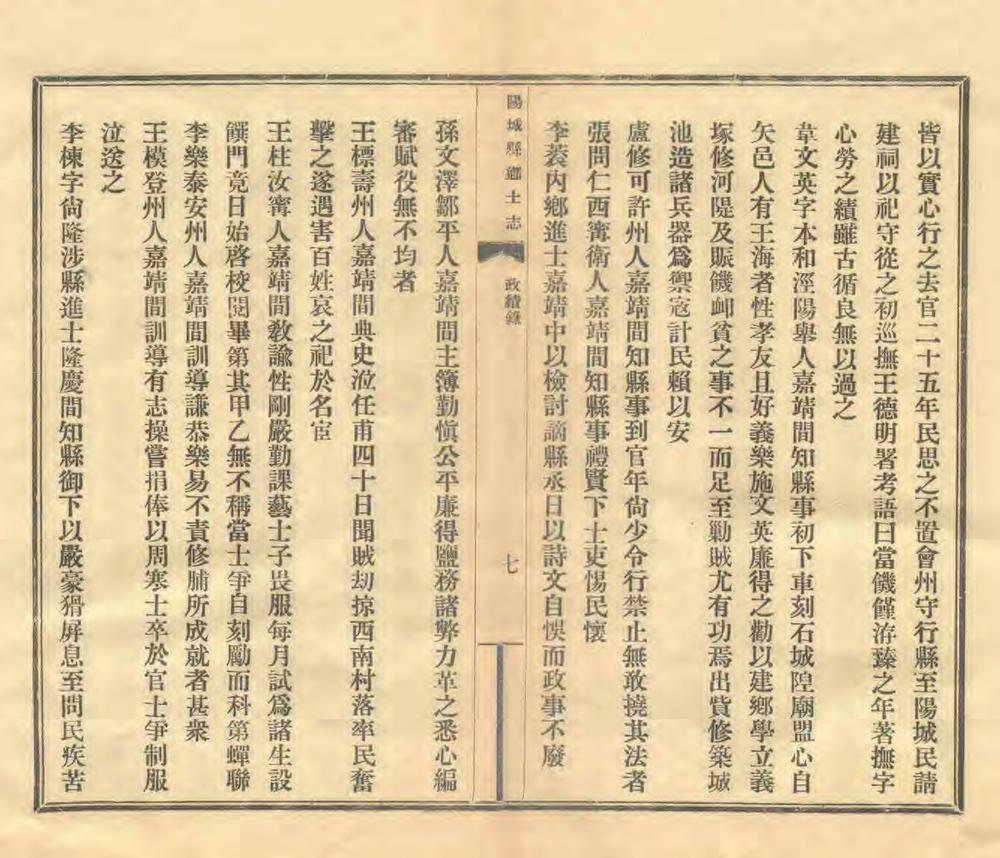 皆以實心行之去官二十五年民思之不置會州守行縣至陽城民請
建祠以祀守從之初巡撫王德明署考語曰當饑饉洊臻之年著撫字
心勞之績雖古循良無以過之
韋文英字本和涇陽舉人嘉靖間知縣事初下車刻石城隍廟盟心自
矢邑人有王海者性孝友且好義樂施文英廉得之勸以建鄉學立義
塚修河隄及賑饑卹貧之事不一而足至勦賊尤有功焉出貲修築城
池造諸兵器爲禦寇計民賴以安
盧修可許州人嘉靖間知縣事到官年尙少令行禁止無敢撓其法者
張問仁西寗衛人嘉靖間知縣事禮賢下士吏惕民懷
李蓘內鄉進士嘉靖中以檢討謫縣丞日以詩文自娛而政事不廢
陽城縣鄕土志
政績錄
七
孫文澤鄒平人嘉靖間主簿勤愼公平廉得鹽務諸弊力革之悉心編
審賦役無不均者
王標壽州人嘉靖間典史涖任甫四十日聞賊劫掠西南村落率民奮
擊之遂遇害百姓哀之祀於名宦
王柱汝寗人嘉靖間敎諭性剛嚴勤課藝士子畏服每月試爲諸生設
饌門竟日始啓校閱畢第其甲乙無不稱當士爭自刻勵而科第蟬聯
李樂泰安州人嘉靖間訓導謙恭樂易不責修脯所成就者甚衆
王模登州人嘉靖間訓導有志操嘗捐俸以周寒士卒於官士爭制服
泣送之
李棟字尙隆涉縣進士隆慶間知縣御下以嚴豪猾屏息至問民疾苦